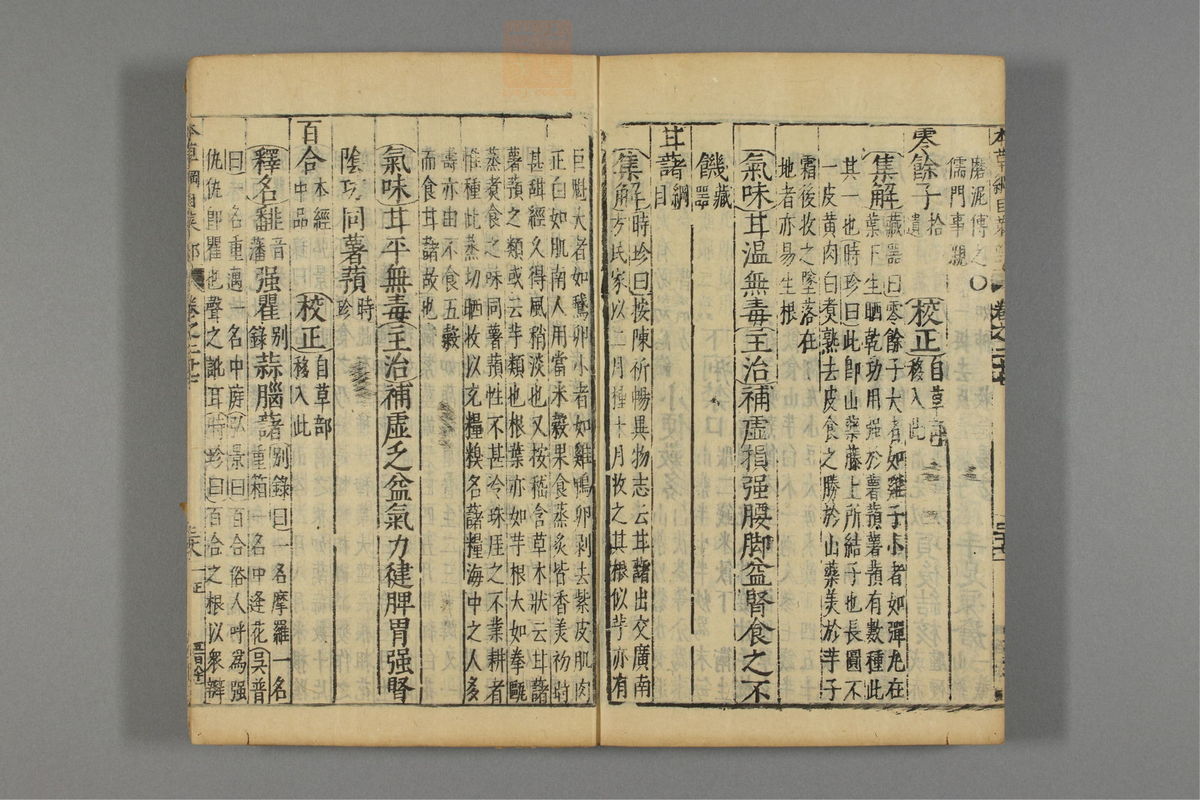 磨泥傅之
儒門事親
零餘子拾遺 校正自草部移入此
集解藏器曰零餘子大者如雞子小者如彈丸在
葉下生晒乾功用强於薯蕷薯蕷有數種此
其一也時珍曰此即山藥藤上所結子也長圓不
一皮黃肉白煮熟去皮食之勝於山藥美於芋子
霜後收之墜落在
地者亦易生根
氣味甘溫無毒主治補虛損强腰脚益腎食之不
饑藏器
甘藷綱目
集解時珍曰按陳祈暢異物志云甘藷出交廣南
方民家以二月種十月收之其根似芋亦有
巨魁大者如鵞卵小者如雞鴨卵剥去紫皮肌肉
正白如肌南人用當米穀果食蒸炙皆香美初時
甚甜經久得風稍淡也又按嵇含草木狀云甘藷
薯蕷之類或云芋類也根葉亦如芋根大如拳甌
蒸煮食之味同薯蕷性不甚冷珠厓之不業耕者
惟種此蒸切晒收以充糧糗名藷糧海中之人多
壽亦由不食五穀
而食甘藷故也
氣味甘平無毒主治補虛乏益氣力健脾胃强腎
陰功同薯蕷時珍
百合本經中品 校正自草部移入此
釋名䪤音藩强瞿别錄蒜腦藷别錄曰一名摩羅一名
重箱一名中逢花吳普
曰一名重邁一名中庭弘景曰百合俗人呼為强
仇仇即瞿也聲之訛耳時珍曰百合之根以衆瓣